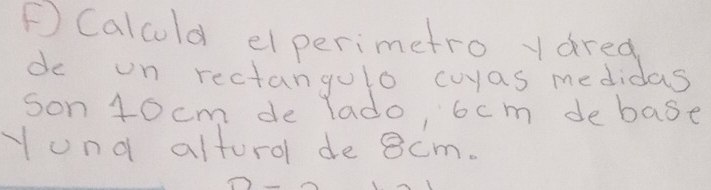 F) Calcula el perimetro y área
de un rectangulo cuyas medidas
son 10cm de lado, 6cm de base
y una altura de 8cm.